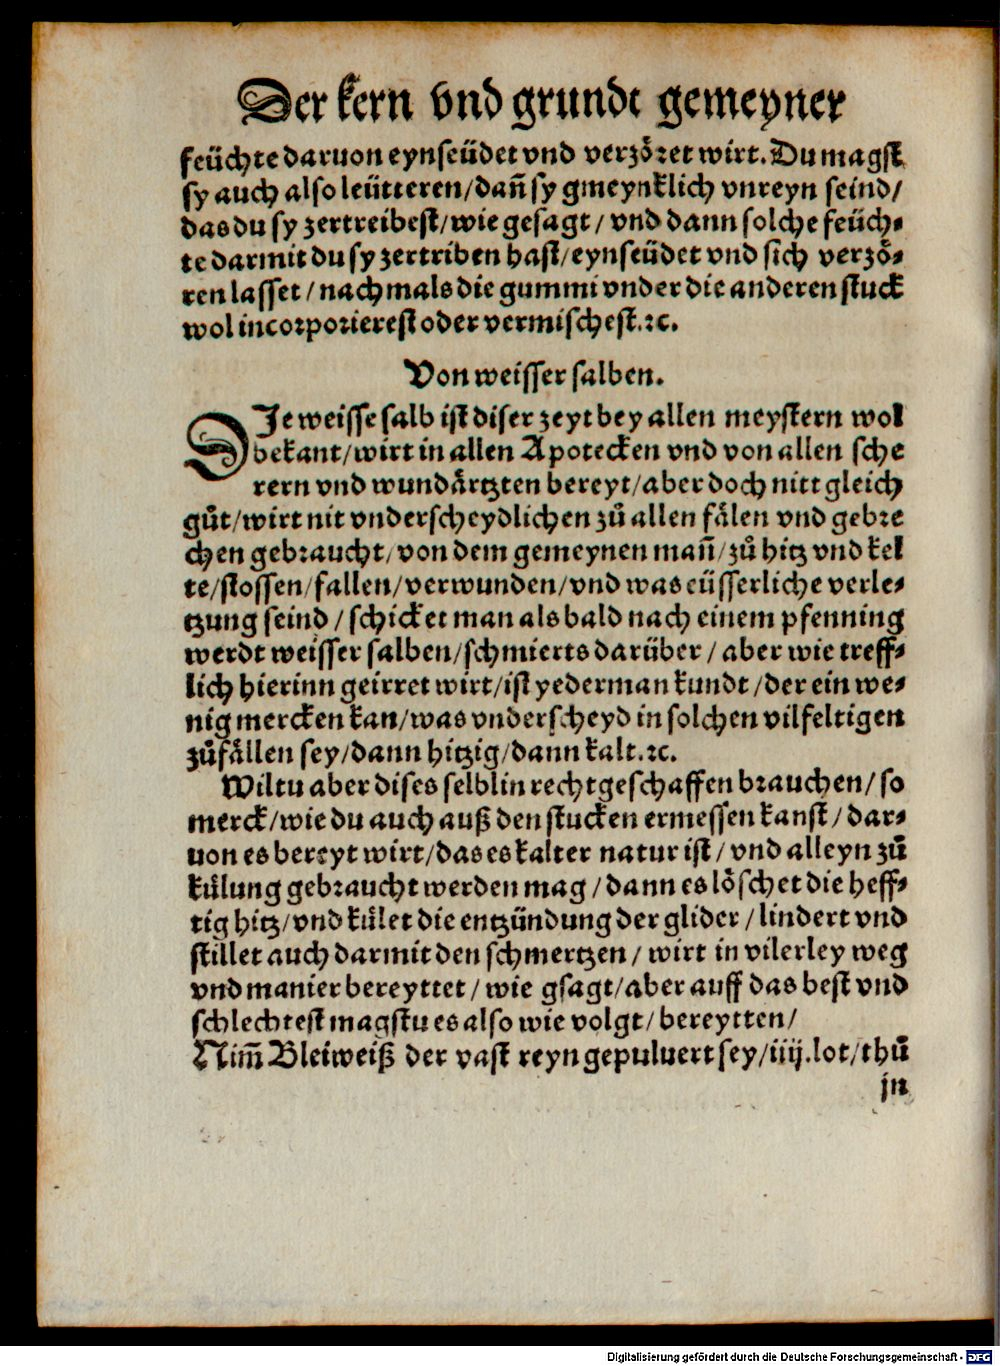 Der kern vnd grundt gemeyner
feüchte daruon eynseüdet vnd verzöret wirt. Du magst
sy auch also leütteren/ dañ sy gmeynklich vnreyn seind/
das du sy zertreibest/ wie gesagt/ vnd dann solche feüch-
te darmit du sy zertriben hast/ eynseüdet vnd sich verzö-
ren lasset/ nachmals die gummi vnder die anderen stuck
wol incorporierest oder vermischest. ꝛc.
Von weisser salben.
DJe weisse salb ist diser zeyt bey allen meystern wol
bekant/ wirt in allen Apotecken vnd von allen sche
rern vnd wundärtzten bereyt/ aber doch nitt gleich
gůt/ wirt nit vnderscheydlichen zů allen fälen vnd gebre
chen gebraucht/ von dem gemeynen mañ/ zů hitz vnd kel
te/ stossen/ fallen/ verwunden/ vnd was eüsserliche verle-
tzung seind/ schicket man als bald nach einem pfenning
werdt weisser salben/ schmierts darüber/ aber wie treff-
lich hierinn geirret wirt/ ist yederman kundt/ der ein we-
nig mercken kan/ was vnderscheyd in solchen vilfeltigen
zůfällen sey/ dann hitzig/ dann kalt. ꝛc.
Wiltu aber dises selblin rechtgeschaffen brauchen/ so
merck/ wie du auch auß den stucken ermessen kanst/ dar-
uon es bereyt wirt/ das es kalter natur ist/ vnd alleyn zů
kůlung gebraucht werden mag/ dann es löschet die heff-
tig hitz/ vnd kůlet die entzündung der glider/ lindert vnd
stillet auch darmit den schmertzen/ wirt in vilerley weg
vnd manier bereyttet/ wie gsagt/ aber auff das best vnd
schlechtest magstu es also wie volgt/ bereytten/
Nim̃ Bleiweiß der vast reyn gepuluert sey/ iiij. lot/ thů
jn
Digitalisierung gefördert durch die Deutsche Forschungsgemeinschaft - DFG